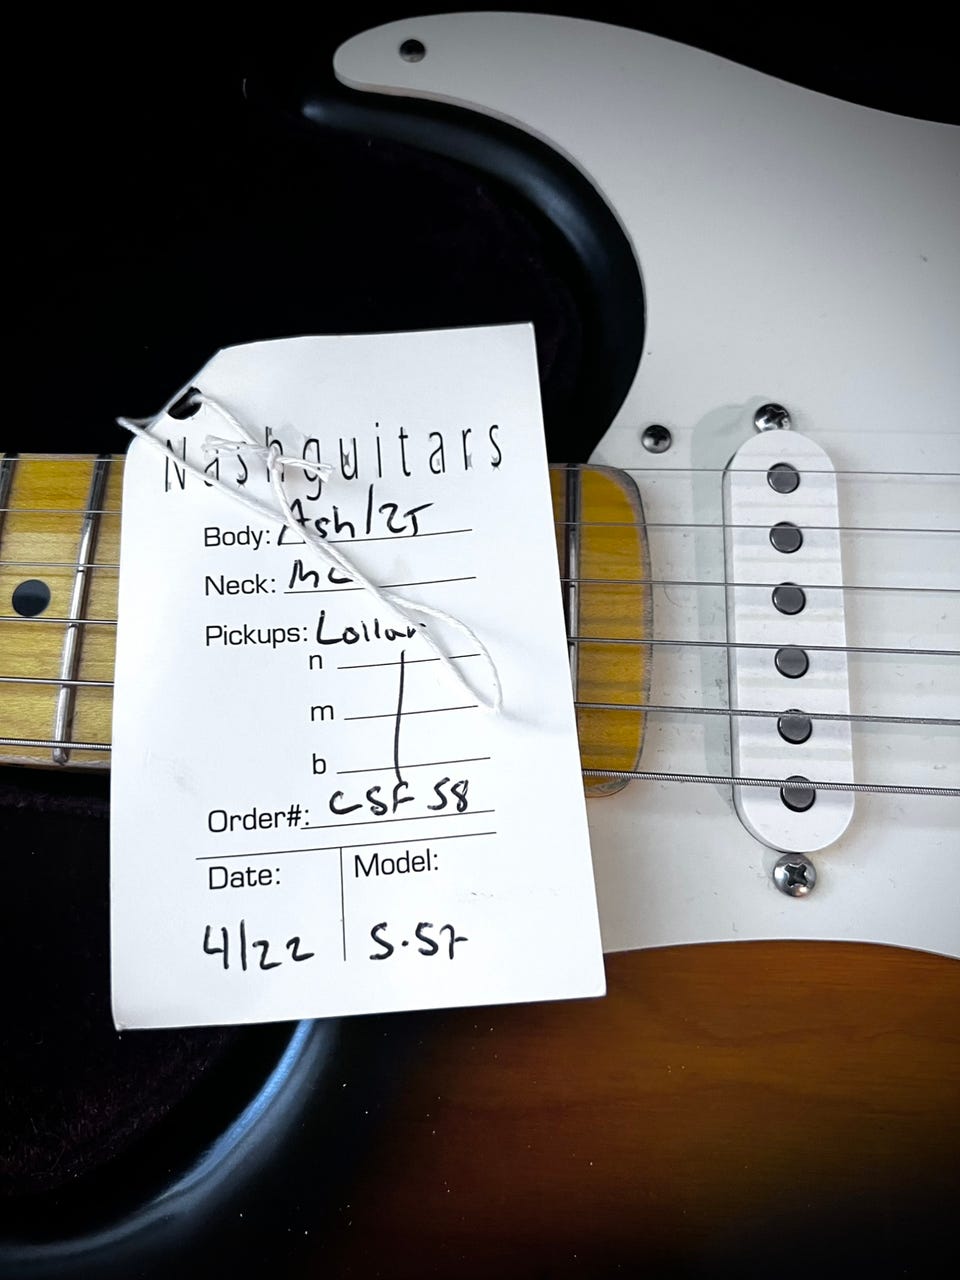 Nashguitars
Body: Ash/2T
Neck: MC
Pickups: Lollar
n
m
b
Order#: CSF 58
Date: Model:
4/22 S-57